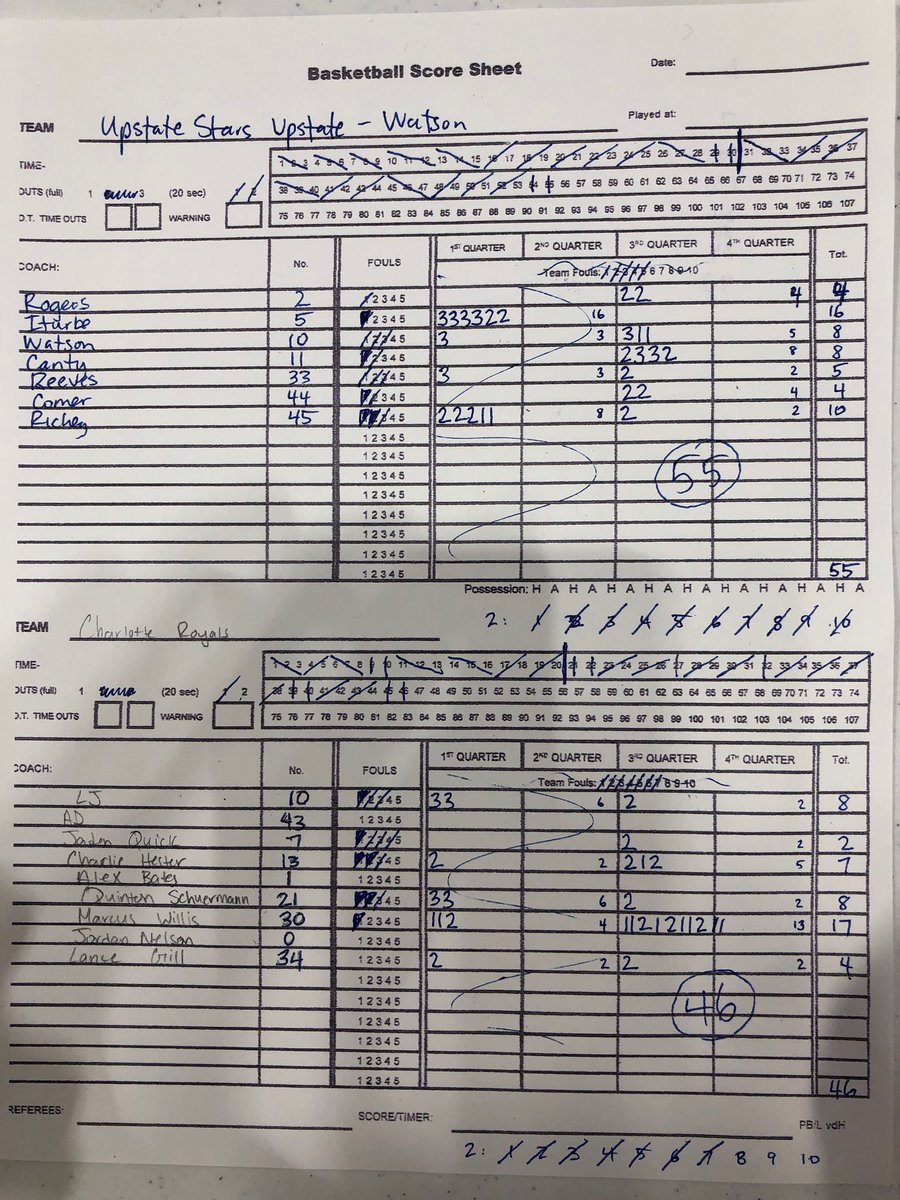 Basketball Score Sheet Date:
TEAM Upstate Stars Upstate - Watson Played at:
TIME- 1 2 3 4 5 6 7 8 9 10 11 12 13 14 15 16 17 18 19 20 21 22 23 24 25 26 27 28 29 30 31 32 33 34 35 36 37
OUTS (full) 1 3 (20 sec) 1 2 38 39 40 41 42 43 44 45 46 47 48 49 50 51 52 53 54 55 56 57 58 59 60 61 62 63 64 65 66 67 68 69 70 71 72 73 74
O.T. TIME OUTS WARNING 75 76 77 78 79 80 81 82 83 84 85 86 87 88 89 90 91 92 93 94 95 96 97 98 99 100 101 102 103 104 105 106 107
COACH: No. FOULS 1ST QUARTER 2ND QUARTER 3RD QUARTER 4TH QUARTER Tot.
Team Fouls: 1 2 3 4 5 6 7 8 9 10
Rogers 2 1 2 3 4 5 22 4 4
Iturbe 5 1 2 3 4 5 333322 16 16
Watson 10 1 2 3 4 5 3 3 311 5 8
Canty 11 1 2 3 4 5 2332 8 8
Reeves 33 1 2 3 4 5 3 3 2 2 5
Comer 44 1 2 3 4 5 22 4 4
Richey 45 1 2 3 4 5 22211 8 2 2 10
1 2 3 4 5
1 2 3 4 5
1 2 3 4 5 55
1 2 3 4 5
1 2 3 4 5
1 2 3 4 5
1 2 3 4 5
1 2 3 4 5 55
Possession: H A H A H A H A H A H A H A H A H A
TEAM Charlotte Royals 2: 1 2 3 4 5 6 7 8 9 10
TIME- 1 2 3 4 5 6 7 8 9 10 11 12 13 14 15 16 17 18 19 20 21 22 23 24 25 26 27 28 29 30 31 32 33 34 35 36 37
OUTS (full) 1 (20 sec) 1 2 38 39 40 41 42 43 44 45 46 47 48 49 50 51 52 53 54 55 56 57 58 59 60 61 62 63 64 65 66 67 68 69 70 71 72 73 74
O.T. TIME OUTS WARNING 75 76 77 78 79 80 81 82 83 84 85 86 87 88 89 90 91 92 93 94 95 96 97 98 99 100 101 102 103 104 105 106 107
COACH: No. FOULS 1ST QUARTER 2ND QUARTER 3RD QUARTER 4TH QUARTER Tot.
Team Fouls: 1 2 3 4 5 6 7 8 9 10
LJ 10 1 2 3 4 5 33 6 2 2 8
AD 43 1 2 3 4 5
Jaden Quick 7 1 2 3 4 5 2 2 2
Charlie Hester 13 1 2 3 4 5 2 2 212 5 7
Alex Bates 1 1 2 3 4 5
Quinten Schuermann 21 1 2 3 4 5 33 6 2 2 8
Marcus Willis 30 1 2 3 4 5 112 4 1121211211 13 17
Jordan Nelson 0 1 2 3 4 5
Lance Grill 34 1 2 3 4 5 2 2 2 2 4
1 2 3 4 5
1 2 3 4 5 46
1 2 3 4 5
1 2 3 4 5
1 2 3 4 5
1 2 3 4 5 46
REFEREES: SCORE/TIMER: PB/L vdH
2: 1 2 3 4 5 6 7 8 9 10